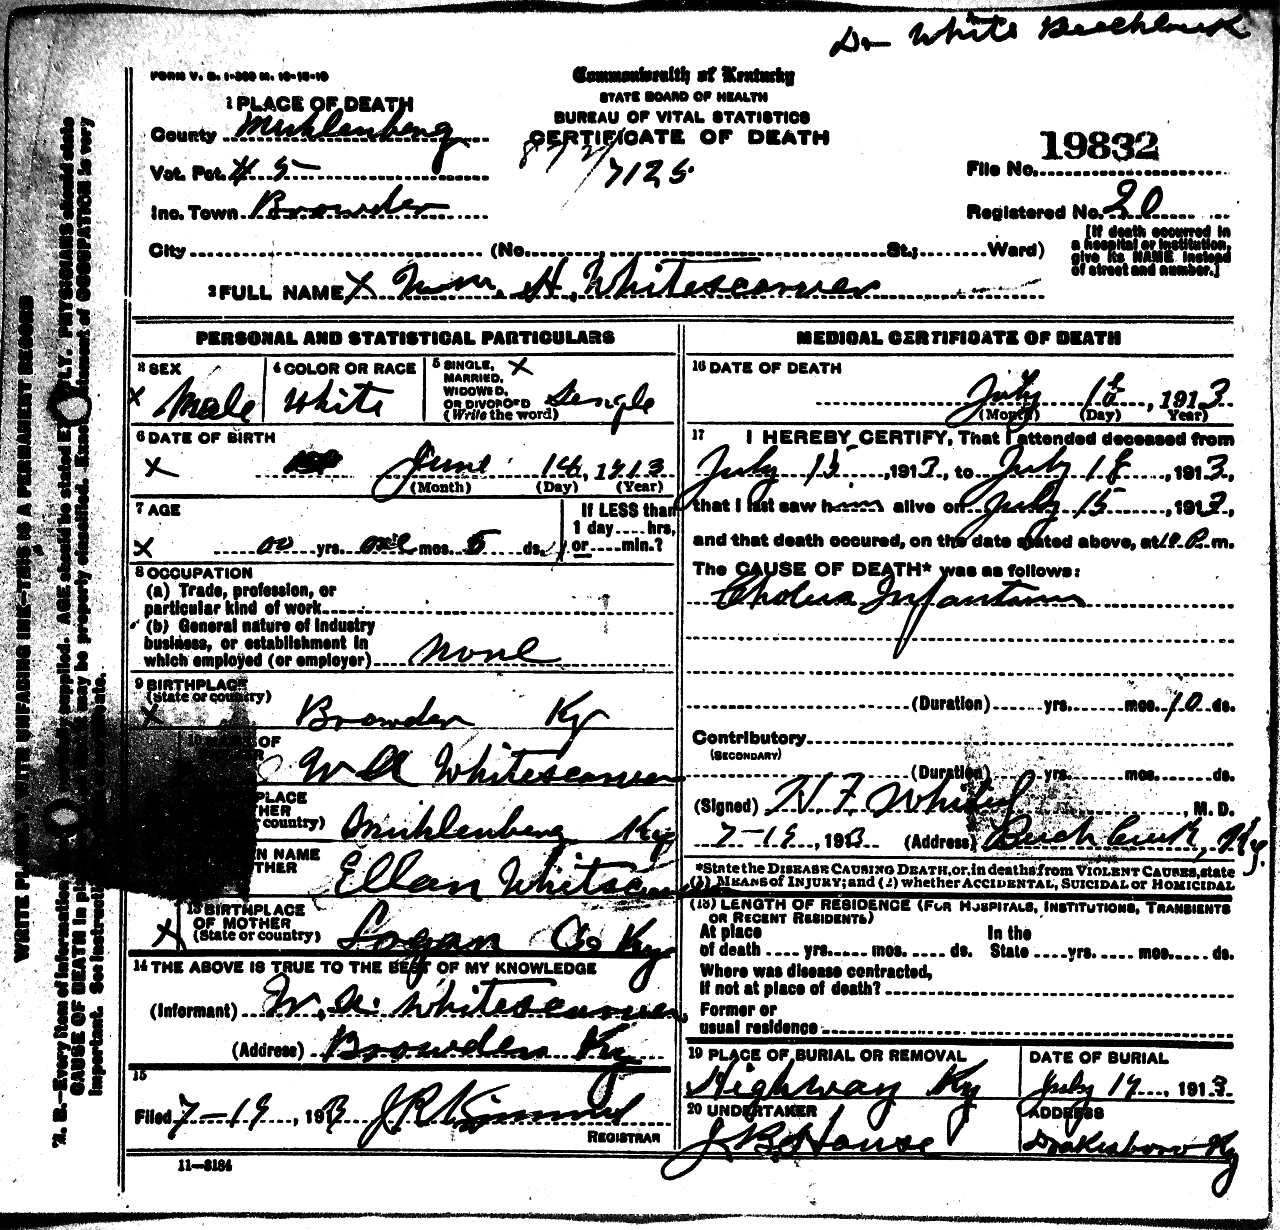 Dr White Beechland
FORM V. S. 1-
Commonwealth of Kentucky
STATE BOARD OF HEALTH
BUREAU OF VITAL STATISTICS
CERTIFICATE OF DEATH
7125
1 PLACE OF DEATH
County Muhlenberg
Vot. Pct. # 5
Inc. Town Browder
City (No. St.; Ward)
File No. 19832
Registered No. 20
[If death occurred in
a hospital or institution,
give its NAME instead
of street and number.]
2 FULL NAME X Wm. H. Whitescarver
PERSONAL AND STATISTICAL PARTICULARS
3 SEX
X Male
4 COLOR OR RACE
White
5 SINGLE, X
MARRIED,
WIDOWED,
OR DIVORCED
(Write the word)
Single
6 DATE OF BIRTH
X June 14, 1913
(Month) (Day) (Year)
7 AGE
X oo yrs. one mos. 5 ds.
If LESS than
1 day hrs,
or min.?
8 OCCUPATION
(a) Trade, profession, or
particular kind of work
(b) General nature of industry
business, or establishment in
which employed (or employer) none
9 BIRTHPLACE
(State or country)
X Browder Ky
10 NAME OF
Whitescarver
PLACE
country)
Muhlenberg Ky
NAME
Ellan Whitescarver
13 BIRTHPLACE
OF MOTHER
(State or country)
X Logan Co Ky
14 THE ABOVE IS TRUE TO THE BEST OF MY KNOWLEDGE
(Informant) W. H. Whitescarver
(Address) Browder Ky
15
Filed 7-19, 1913
REGISTRAR
11-3184
MEDICAL CERTIFICATE OF DEATH
16 DATE OF DEATH
July 18, 1913
(Month) (Day) (Year)
17 I HEREBY CERTIFY, That I attended deceased from
July 15, 1913, to July 18, 1913,
that I last saw him alive on July 15, 1913,
and that death occured, on the date stated above, at m.
The CAUSE OF DEATH* was as follows:
Cholera Infantum
(Duration) yrs. mos. 10 ds.
Contributory
(SECONDARY)
(Duration) yrs. mos. ds.
(Signed) H. F. White, M. D.
7-19, 1913 (Address) Ky.
*State the DISEASE CAUSING DEATH, or, in deaths from VIOLENT CAUSES, state
(1) MEANS of INJURY; and (2) whether ACCIDENTAL, SUICIDAL or HOMICIDAL
(18) LENGTH OF RESIDENCE (FOR HOSPITALS, INSTITUTIONS, TRANSIENTS
OR RECENT RESIDENTS)
At place In the
of death yrs. mos. ds. State yrs. mos. ds.
Where was disease contracted,
if not at place of death?
Former or
usual residence
19 PLACE OF BURIAL OR REMOVAL
Highway Ky
DATE OF BURIAL
July 19, 1913
20 UNDERTAKER
J. B. House
ADDRESS
Drakesboro Ky
WRITE PLAINLY, WITH UNFADING INK-THIS IS A PERMANENT RECORD
N. B.-Every item of information supplied. AGE should be stated PHYSICIANS should state
CAUSE OF DEATH in may be properly classified. statement of OCCUPATION is very
important. See instructions